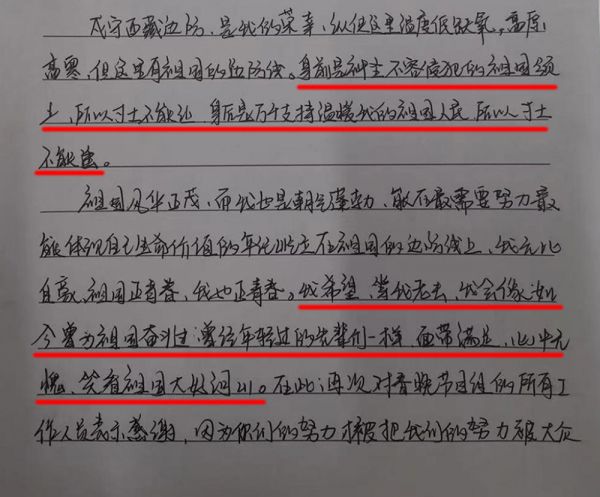 戍守西藏边防，是我的荣幸，纵使这里温度低缺氧。高原
高寒，但这里有祖国的边防线。身前是神圣不容侵犯的祖国领
土，所以寸土不能让，身后是万千支持温暖我的祖国人民，所以寸土
不能丢。
祖国风华正茂，而我也是朝气蓬勃，能在最需要努力最
能体现自己生命价值的年纪屹立在祖国的边防线上，我无比
自豪，祖国正青春，我也正青春。我希望，当我老去，我会像如
今曾为祖国奋斗过曾经年轻过的先辈们一样，面带满足，心中无
愧，笑看祖国大好河山。在此，再次对春晚节目组的所有工
作人员表示感谢，因为你们的努力才被把我们的努力被大众